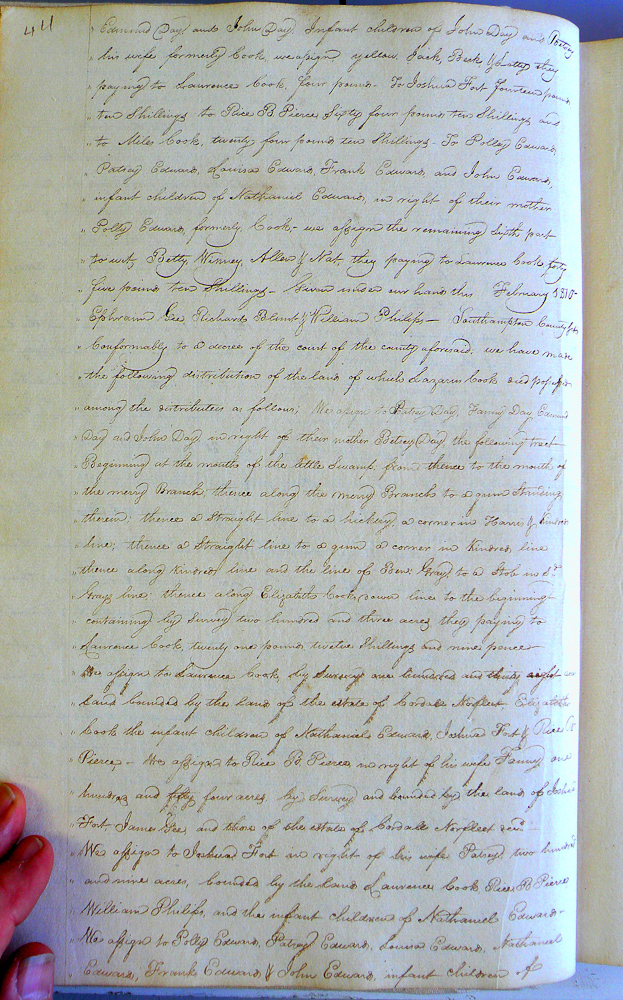 44
Edmund Day and John Day, Infant children of John Day and Betsey
his wife formerly Cook, we assign yellow Jack, Beck & Letty they
paying to Laurence Cook, four pounds - To Joshua Fort Fourteen pounds
ten Shillings to Rice B. Pierce Sixty four pounds ten Shillings and
to Miles Cook, twenty four pounds ten Shillings - To Polley Edwards,
Patsey Edwards, Louisa Edwards, Frank Edwards, and John Edwards,
infant children of Nathaniel Edwards, in right of their mother
Polly Edwards, formerly Cook, - we assign the remaining sixth part
to wit, Betty, Winney, Allen & Nat, they paying to Laurence Cook, forty
five pounds ten Shillings - Given under our hands this February 1810 -
Ephraim Gee Richard Blunt & William Philips - Southampton County Sct,
Conformably to a decree of the court of the county aforesaid, we have made
the following distribution of the land of which Lazarus Cook died possessed
among the distributees as follows, We assign to Patsey Day, Fanny Day, Edmund
Day and John Day, in right of their mother Betsey Day, the following tract
Beginning at the mouth of the little Swamp, from thence to the mouth of
the miry Branch, thence along the miry Branch to a gum Standing
therein, thence a Straight line to a hickery, a corner in Harris & Kindred
line, thence a Straight line to a gum a corner in Kindred line
thence along Kindred line and the line of Benj. Gray to a Stob in Sd.
Grays line, thence along Elizabeth Cooks, down line to the beginning
containing by Survey two hundred and three acres they paying to
Laurence Cook, twenty one pounds, twelve Shillings and nine pence
We assign to Laurence Cook, by Survey one hundred and thirty eight acres
land bounded by the land of the estate of Cordale Norfleet, Elizabeth
Cook the infant children of Nathaniel Edwards, Joshua Fort & Rice B.
Pierce, - We assign to Rice B. Pierce in right of his wife Fanney one
hundred and fifty four acres by Survey and bounded by the land of Joshua
Fort, James Gee, and those of the estate of Cordale Norfleet decd -
We assign to Joshua Fort in right of his wife Patsey two hundred
and nine acres, bounded by the land Laurence Cook, Rice B. Pierce
William Philips, and the infant children of Nathaniel Edwards -
We assign to Polly Edwards, Patsey Edwards, Louisa Edwards, Nathaniel
Edwards, Frank Edwards & John Edwards, infant children of